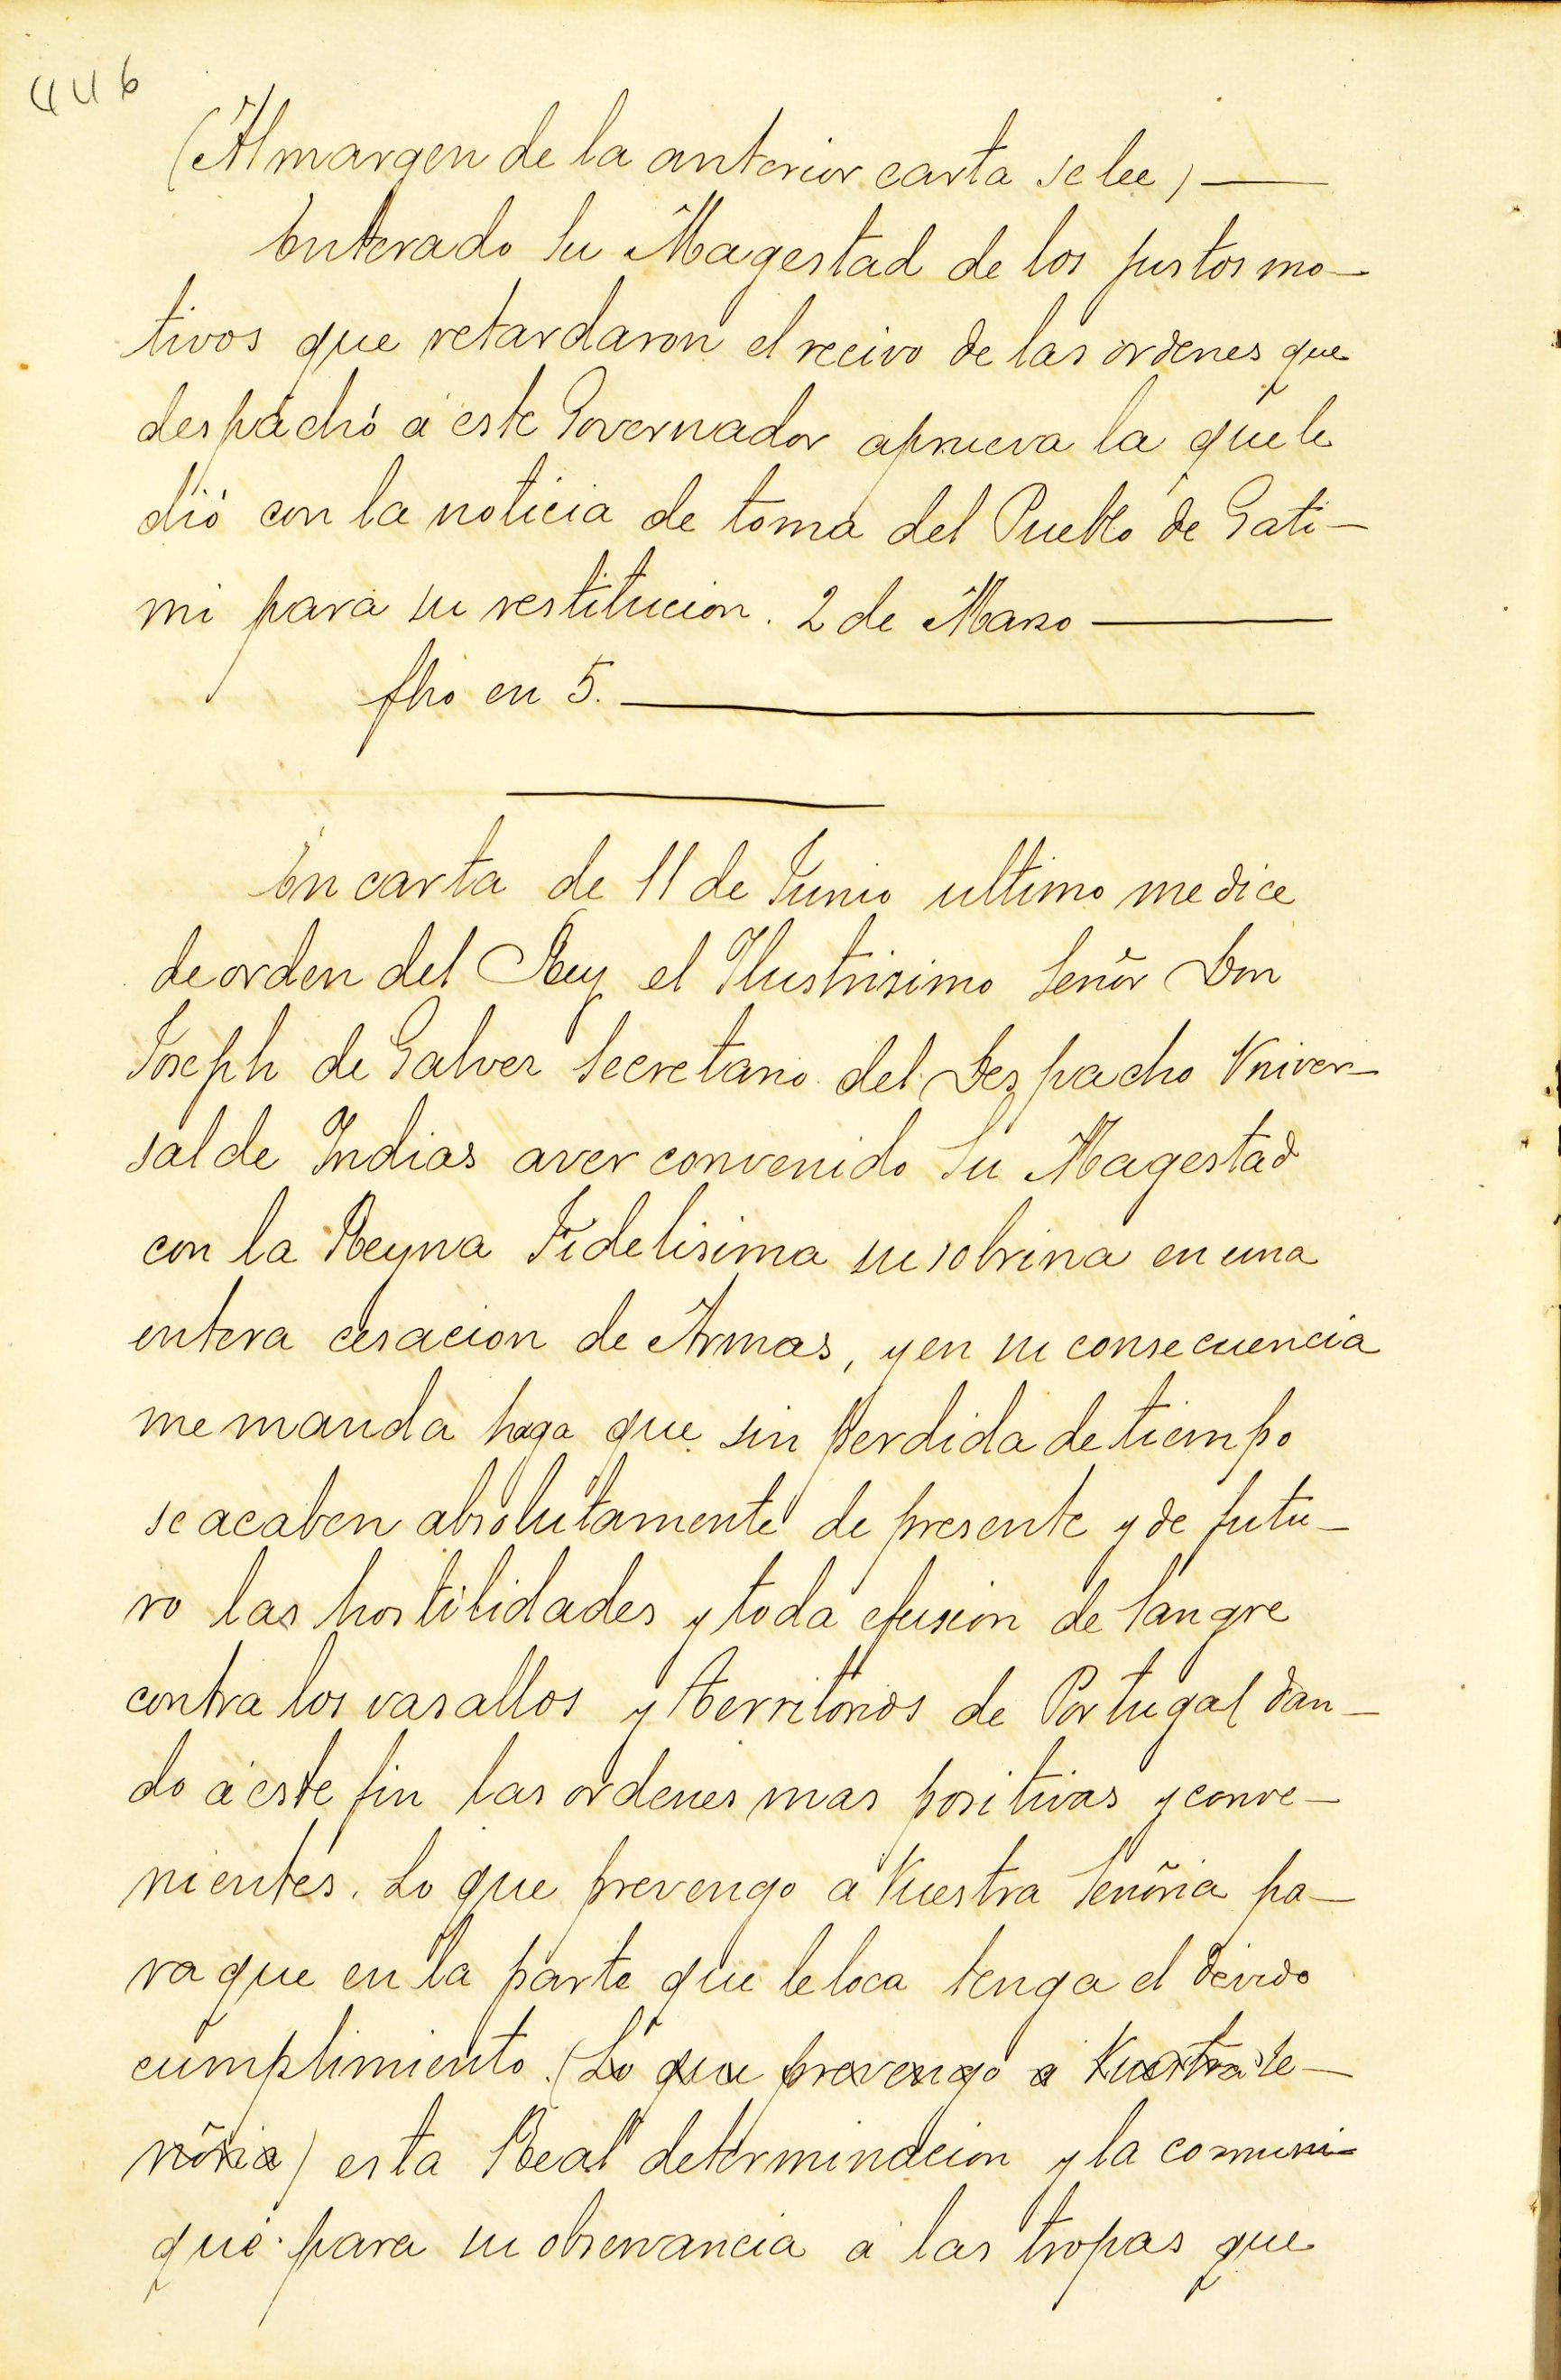 446
(Al margen de la anterior carta se lee)—
Enterado Su Magestad de los justos mo-
tivos que retardaron el recivo de las ordenes que
despachó á este Governador aprueva la que le
dió con la noticia de toma del Pueblo de Gati-
mi para su restitucion. 2 de Marzo—
fho en 5.—
En carta de 11 de Junio ultimo me dice
de orden del Rey el Ilustrisimo Señor Don
Joseph de Galvez Secretario del Despacho Univer-
sal de Indias aver convenido Su Magestad
con la Reyna Fidelisima su sobrina en una
entera cesacion de Armas, y en su consecuencia
me manda haga que sin perdida de tiempo
se acaben absolutamente de presente y de futu-
ro las hostilidades y toda efusion de Sangre
contra los vasallos y territorios de Portugal dan-
do á este fin las ordenes mas positivas y conve-
nientes. Lo que prevengo á Vuestra Señoria pa-
ra que en la parte que le toca tenga el devido
cumplimiento. (Lo que prevengo a Vuestra Se-
ñoria) esta Real determinacion y la comuni-
que para su observancia á las tropas que